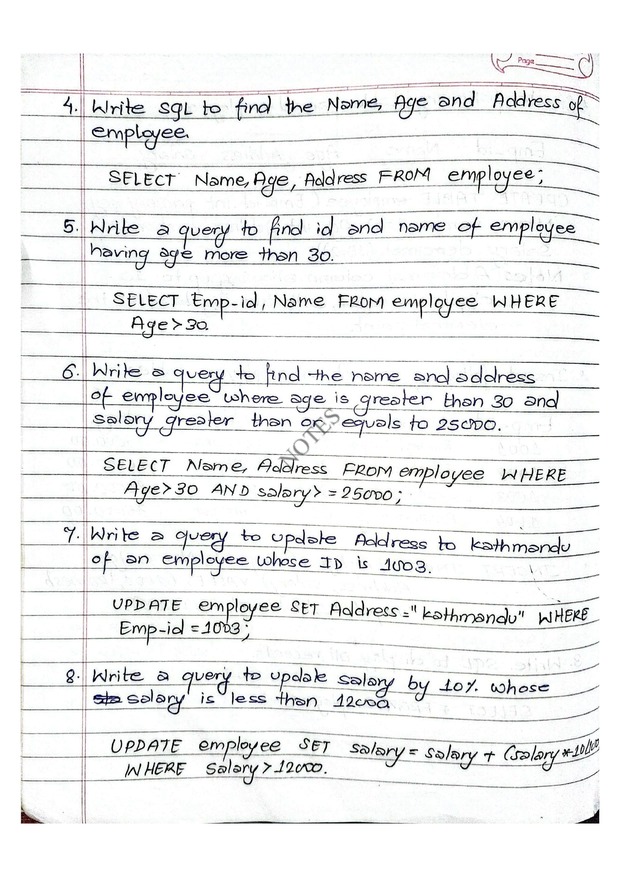 Page
4. Write SQL to find the Name, Age and Address of
employee.
SELECT Name, Age, Address FROM employee;
5. Write a query to find id and name of employee
having age more than 30.
SELECT Emp-id, Name FROM employee WHERE
Age>30.
6. Write a query to find the name and address
of employee where age is greater than 30 and
salary greater than or equals to 25000.
NOTES
SELECT Name, Address FROM employee WHERE
Age>30 AND salary>=25000;
7. Write a query to update Address to kathmandu
of an employee whose ID is 1003.
UPDATE employee SET Address="kathmandu" WHERE
Emp-id=1003;
8. Write a query to update salary by 10% whose
salary is less than 12000
UPDATE employee SET salary= salary + (salary*10/100
WHERE Salary>12000.